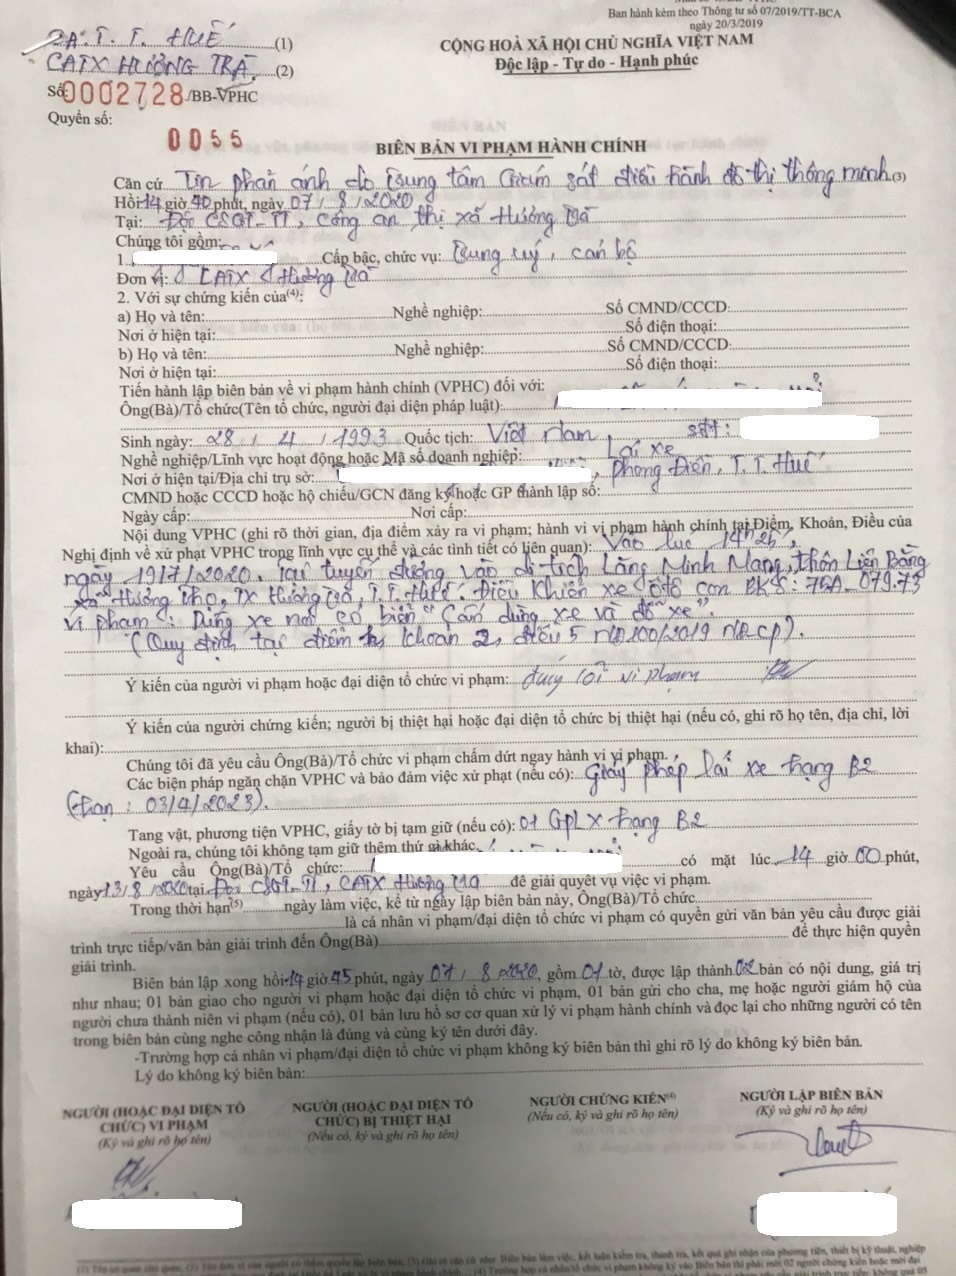 Ban hành kèm theo Thông tư số 07/2019/TT-BCA
ngày 20/3/2019
CA.T.T. HUẾ (1)
CATX HƯƠNG TRÀ (2)
CỘNG HOÀ XÃ HỘI CHỦ NGHĨA VIỆT NAM
Độc lập - Tự do - Hạnh phúc
Số: 0002728 /BB-VPHC
Quyển số: 0055
BIÊN BẢN VI PHẠM HÀNH CHÍNH
Căn cứ Tin phản ánh do Trung tâm Giám sát điều hành đô thị thông minh (3)
Hồi 14 giờ 40 phút, ngày 07/8/2020
Tại: Đội CSGT-TT, công an thị xã Hương Trà
Chúng tôi gồm:
1. Cấp bậc, chức vụ: Trung uý, cán bộ
Đơn vị: CATX Hương Trà
2. Với sự chứng kiến của(4):
a) Họ và tên: Nghề nghiệp: Số CMND/CCCD:
Nơi ở hiện tại: Số điện thoại:
b) Họ và tên: Nghề nghiệp: Số CMND/CCCD:
Nơi ở hiện tại: Số điện thoại:
Tiến hành lập biên bản về vi phạm hành chính (VPHC) đối với:
Ông(Bà)/Tổ chức(Tên tổ chức, người đại diện pháp luật):
Sinh ngày: 28 / 4 / 1993 Quốc tịch: Việt Nam sđt:
Nghề nghiệp/Lĩnh vực hoạt động hoặc Mã số doanh nghiệp: Lái xe
Nơi ở hiện tại/Địa chỉ trụ sở: Phong Điền, T.T. Huế
CMND hoặc CCCD hoặc hộ chiếu/GCN đăng ký hoặc GP thành lập số:
Ngày cấp: Nơi cấp:
Nội dung VPHC (ghi rõ thời gian, địa điểm xảy ra vi phạm; hành vi vi phạm hành chính tại Điểm, Khoản, Điều của
Nghị định về xử phạt VPHC trong lĩnh vực cụ thể và các tình tiết có liên quan): Vào lúc 14h26,
ngày 19/7/2020. tại tuyến đường vào di tích Lăng Minh Mạng, thôn Liên Bằng
xã Hương Thọ, TX Hương Trà, T.T. Huế. Điều khiển xe ô tô con BKS: 75A-079.73
vi phạm: Dừng xe nơi có biển "Cấm dừng xe và đỗ xe".
(Quy định tại điểm h khoản 2, điều 5 NĐ 100/2019 NĐ.CP).
Ý kiến của người vi phạm hoặc đại diện tổ chức vi phạm: lỗi vi phạm
Ý kiến của người chứng kiến; người bị thiệt hại hoặc đại diện tổ chức bị thiệt hại (nếu có, ghi rõ họ tên, địa chỉ, lời
khai):
Chúng tôi đã yêu cầu Ông(Bà)/Tổ chức vi phạm chấm dứt ngay hành vi vi phạm.
Các biện pháp ngăn chặn VPHC và bảo đảm việc xử phạt (nếu có): Giấy phép lái xe hạng B2
(hạn: 03/4/2023).
Tang vật, phương tiện VPHC, giấy tờ bị tạm giữ (nếu có): 01 GPLX hạng B2
Ngoài ra, chúng tôi không tạm giữ thêm thứ gì khác.
Yêu cầu Ông(Bà)/Tổ chức: có mặt lúc 14 giờ 00 phút,
ngày 13/8/2020 tại Đội CSGT-TT, CATX Hương Trà để giải quyết vụ việc vi phạm.
Trong thời hạn(5) ngày làm việc, kể từ ngày lập biên bản này, Ông(Bà)/Tổ chức
là cá nhân vi phạm/đại diện tổ chức vi phạm có quyền gửi văn bản yêu cầu được giải
trình trực tiếp/văn bản giải trình đến Ông(Bà) để thực hiện quyền
giải trình.
Biên bản lập xong hồi 14 giờ 45 phút, ngày 07/8/2020, gồm 01 tờ, được lập thành 02 bản có nội dung, giá trị
như nhau; 01 bản giao cho người vi phạm hoặc đại diện tổ chức vi phạm, 01 bản gửi cho cha, mẹ hoặc người giám hộ của
người chưa thành niên vi phạm (nếu có), 01 bản lưu hồ sơ cơ quan xử lý vi phạm hành chính và đọc lại cho những người có tên
trong biên bản cùng nghe công nhận là đúng và cùng ký tên dưới đây.
-Trường hợp cá nhân vi phạm/đại diện tổ chức vi phạm không ký biên bản thì ghi rõ lý do không ký biên bản.
Lý do không ký biên bản:
NGƯỜI (HOẶC ĐẠI DIỆN TỔ CHỨC) VI PHẠM
(Ký và ghi rõ họ tên)
NGƯỜI (HOẶC ĐẠI DIỆN TỔ CHỨC) BỊ THIỆT HẠI
(Nếu có, ký và ghi rõ họ tên)
NGƯỜI CHỨNG KIẾN(4)
(Nếu có, ký và ghi rõ họ tên)
NGƯỜI LẬP BIÊN BẢN
(Ký và ghi rõ họ tên)